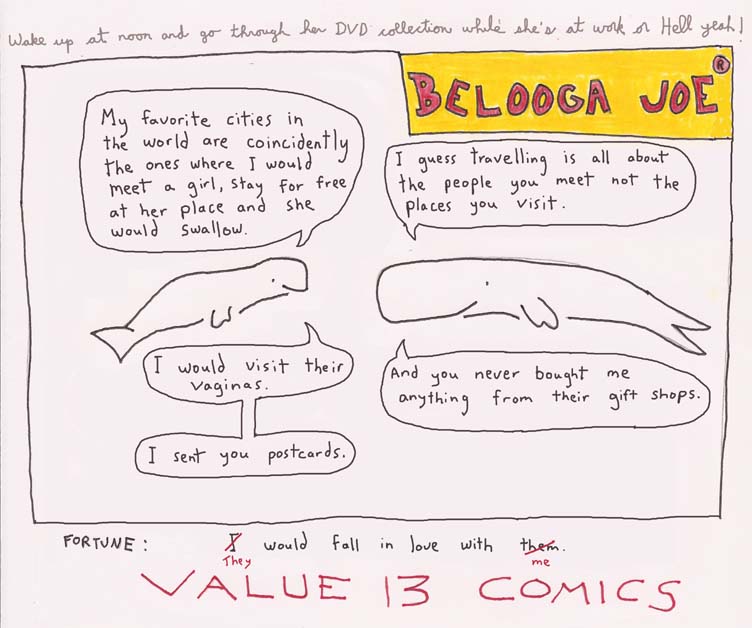 Wake up at noon and go through her DVD collection while she's at work or Hell yeah!
BELOOGA JOE ®
My favorite cities in
the world are coincidently
the ones where I would
meet a girl, stay for free
at her place and she
would swallow.
I guess travelling is all about
the people you meet not the
places you visit.
I would visit their
vaginas.
And you never bought me
anything from their gift shops.
I sent you postcards.
FORTUNE: I would fall in love with them.
They me
VALUE 13 COMICS